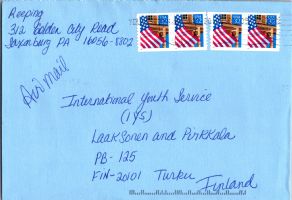 Reeping
312 Golden City Road
Saxonburg PA 16056-8802
Air mail
International Youth Service
(IYS)
Laaksonen and Pirkkala
PB-125
FIN-20101 Turku
Finland